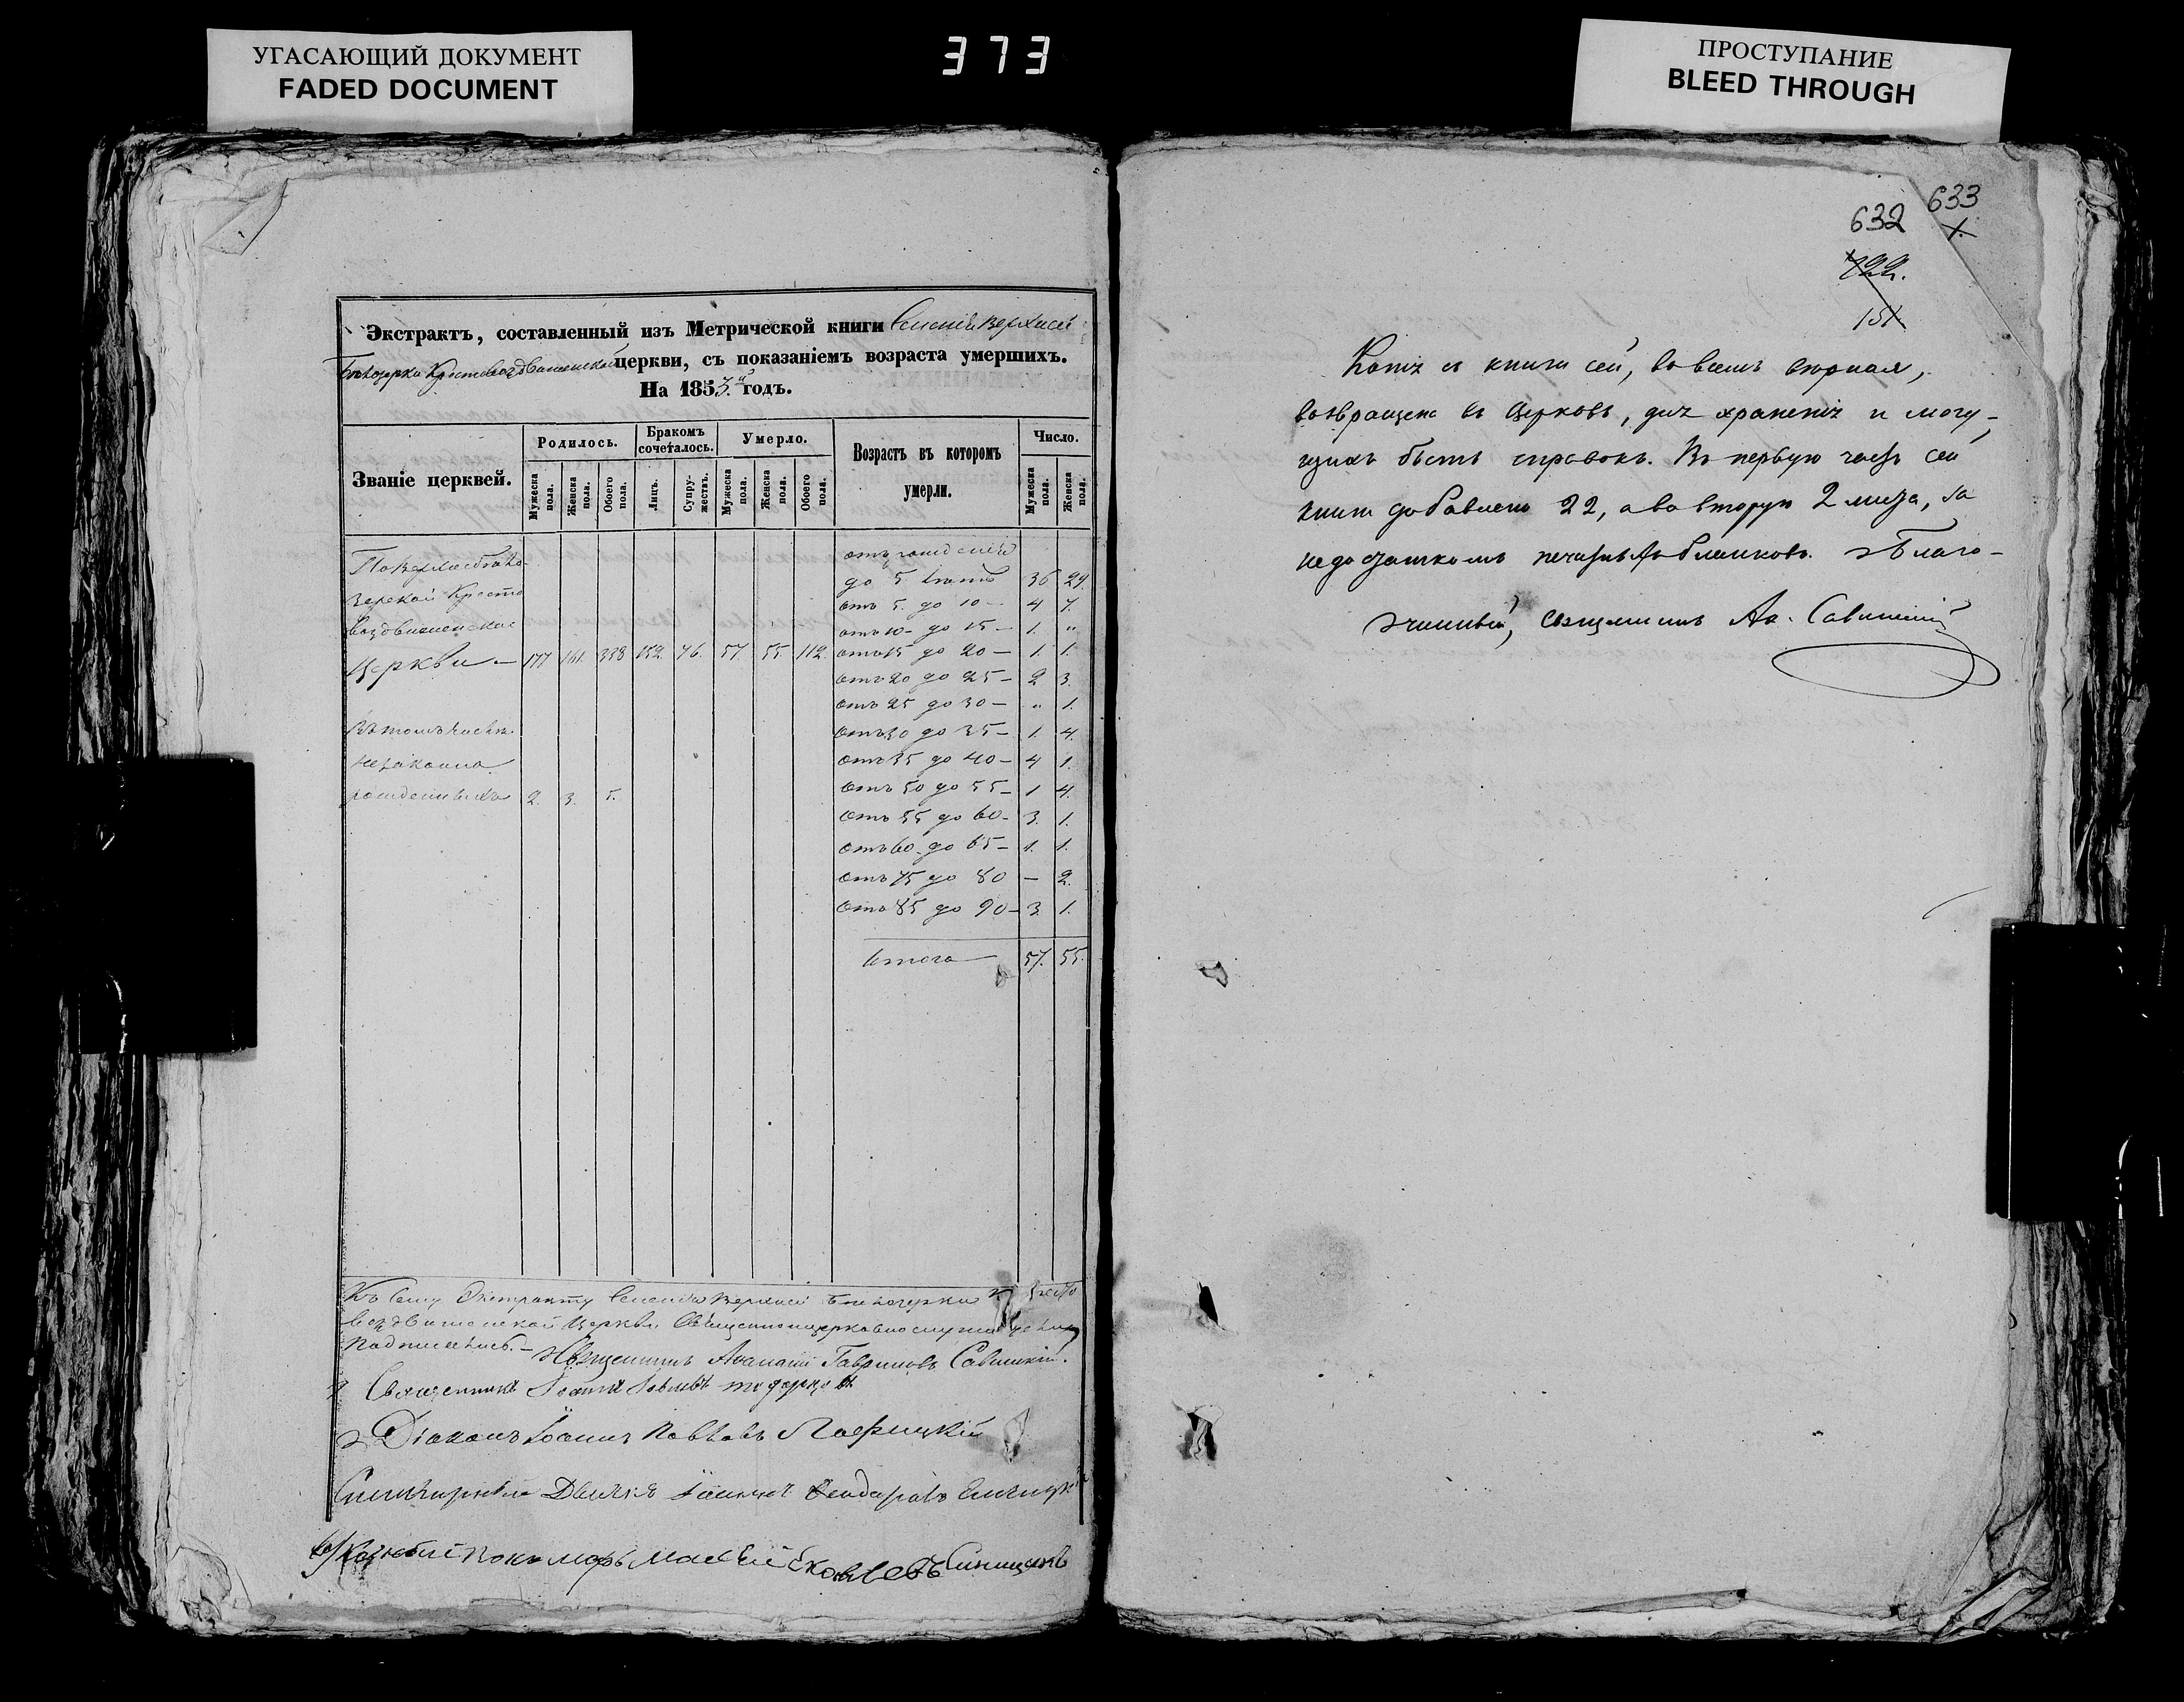 УГАСАЮЩИЙ ДОКУМЕНТ
FADED DOCUMENT
373
ПРОСТУПАНИЕ
BLEED THROUGH
Экстрактъ, составленный изъ Метрической книги Селенія Верхней
Бѣлозерки Крестовоздвиженской церкви, съ показаніемъ возраста умершихъ.
На 1853й годъ.
Званіе церквей.
Родилось.
Мужеска пола.
Женска пола.
Обоего пола.
Бракомъ сочеталось.
Лицъ.
Супружествъ.
Умерло.
Мужеска пола.
Женска пола.
Обоего пола.
Возрастъ въ которомъ умерли.
Число.
Мужеска пола.
Женска пола.
отъ рожденія
до 5 36 29.
отъ 5. до 10 – 4 7.
отъ 10 – до 15 – 1. "
Воздвиженской
Церкви – 177 161. 338 152. 76. 57. 55. 112. отъ 15 до 20 – 1. 1.
отъ 20 до 25 – 2 3.
отъ 25 до 30 – " 1.
Въ томъ числѣ отъ 30 до 35 – 1. 4.
незаконно отъ 35 до 40 – 4 1.
рожденныхъ 2. 3. 5. отъ 50 до 55 – 1 4.
отъ 55 до 60 – 3. 1.
отъ 60 до 65 – 1. 1.
отъ 75 до 80 – 2.
отъ 85 до 90 – 3. 1.
Итого 57. 55.
Къ сему Экстракту Селенія Верхней Бѣлозерки
воздвиженской Церкви Священноцерковнослужители
подписались. – Священникъ Аѳанасій Гавриловъ Савицкій.
Священникъ Іоаннъ
Діаконъ Іоаннъ Павловъ
Іоаннъ
Пономарь Яковлевъ Синицынъ
633
632
722.
151
Копія съ книги сей, во всемъ вѣрная,
возвращена въ Церковь, для храненія и могу-
щихъ быть справокъ. Въ первую часть сей
книги добавлено 22, а во вторую 2 листа, за
недостаткомъ печатныхъ бланковъ. Благо-
чинный, Священникъ Аѳ. Савицкій